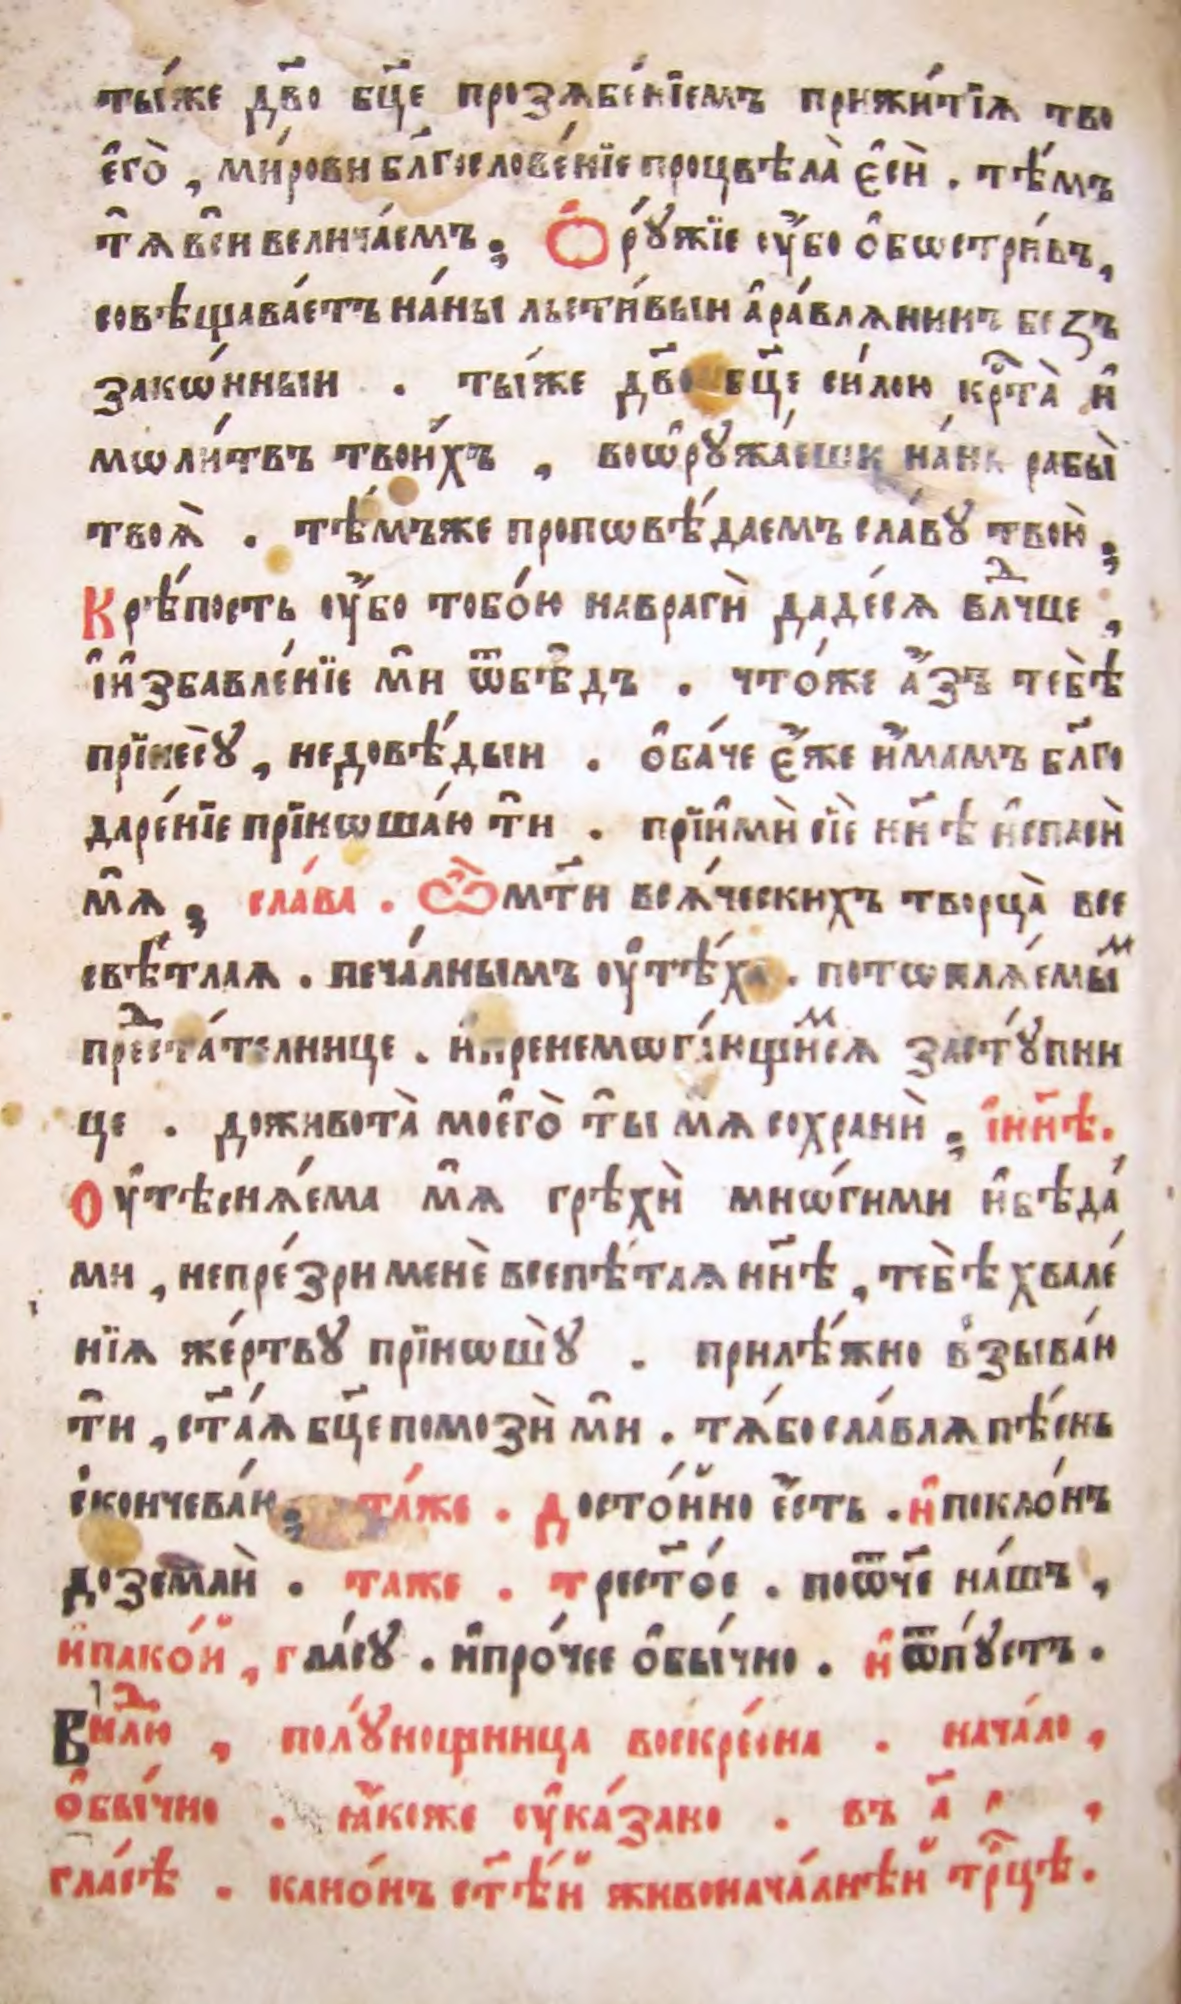 ты́же дв҃о бц҃е прозѧбе́нїемъ прижи́тїѧ тво
его̀ , ми́рови бл҃гословенїе процвѣла̀ єсѝ . тѣ́мъ
тѧ вси величаемъ ; Ору́жїе ᲂу҆́бо ѡбѡстри́въ ,
совѣщава́етъ на́ны льсти́выи ара́влѧнинъ безъ
зако́нныи . ты́же дв҃о бц҃е си́лою крⷭ҇та̀ и҆
мѡли́твъ твои́хъ , воѡружа́еши на́ны рабы̀
твоѧ̀ . тѣ́мъже пропѡвѣ́даемъ сла́ву твою̀ ;
Крѣ́пость ᲂу҆́бо тобо́ю наврагѝ даде́сѧ влⷣчце ,
и҆избавле́нїе ми ѿбѣ́дъ . что́же а҆́зъ тебѣ̀
прїнесу̀ , недовѣ́дыи . ѻба́че є҆́же и҆́мамъ бл҃го
даре́нїе прїнѡша́ю ти . прїимѝ сїѐ нн҃ѣ и҆спасѝ
мѧ ; сла́ва . Ѿмт҃и всѧ́ческихъ творца̀ все
свѣ́тлаѧ . печа́лнымъ ᲂу҆тѣ́ха . потѡплѧ́емыⷨ
прⷣеста́телнице . и҆пренемѡга́ющиⷨсѧ засту́пни
це . доживота̀ моего̀ ты мѧ сохранѝ ; инн҃ѣ .
Оу҆тѣснѧ́ема мѧ грѣхѝ мнѡ́гими и҆бѣда́
ми , непре́зри менѐ всепѣ́таѧ нн҃ѣ , тебѣ̀ хвале́
нїѧ же́ртву прїнѡшу̀ . прилѣ́жно взыва́ю
ти , ст҃а́ѧ бц҃е помозѝ ми . тѧ́бо сла́влѧ пѣ́снь
скончева́ю ; та́же . Досто́йно є҆́сть . и҆покло́нъ
доземлѝ . таже . трест҃о́е . поѿч҃е на́шъ ,
и҆пако́и , гла́су . и҆про́чее ѻбы́чно . и҆ ѿпу́стъ .
Внⷣлю , полу́нощница воскре́сна . нача́ло ,
ѻбы́чно . ꙗ҆́коже ᲂу҆ка́зано . въ а҃
гла́сѣ . кано́нъ ст҃ѣ́й живонача́лнѣй трⷪ҇цѣ .